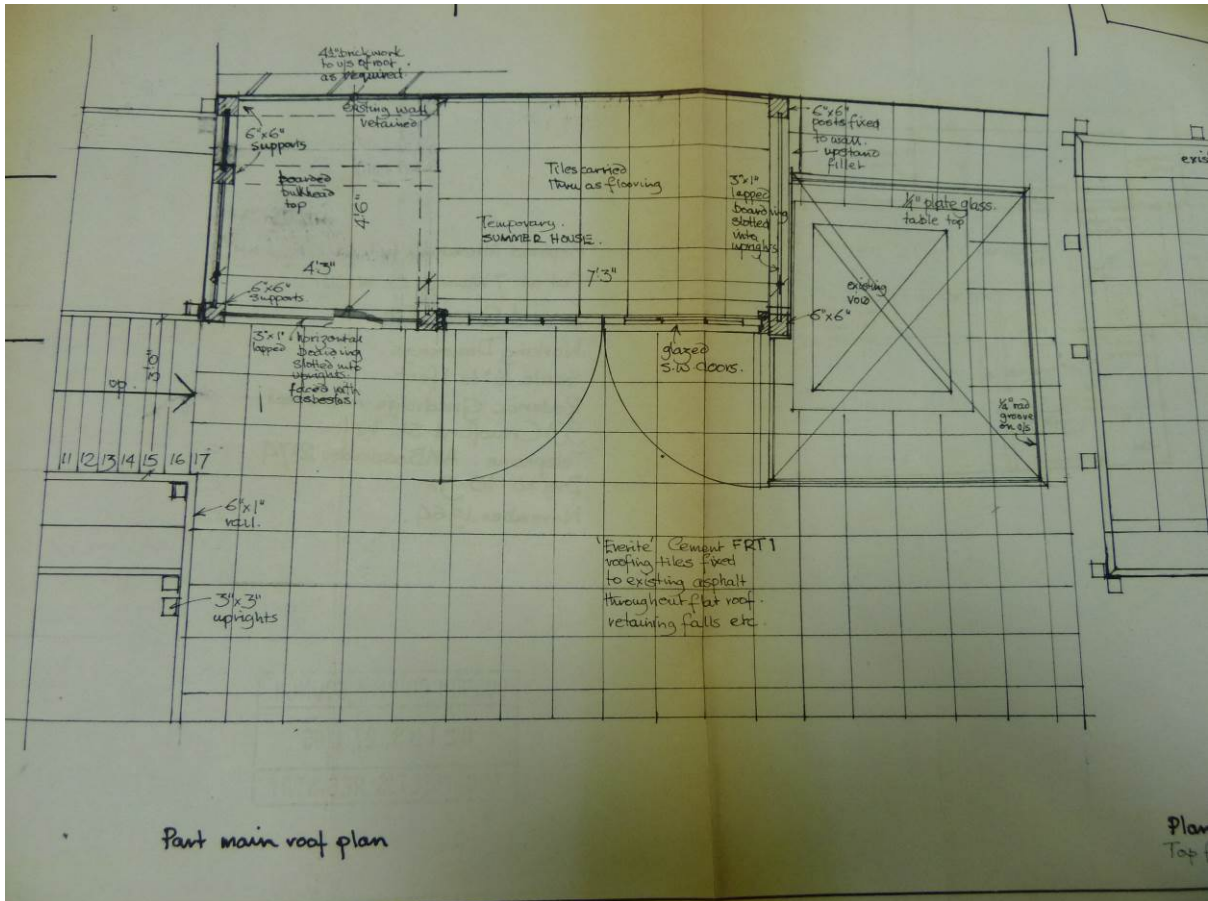 4½" brickwork
to u/s of roof.
as required
existing wall
retained
6"x6"
supports
boarded
bulkhead
top
4'6"
4'3"
6"x6"
supports
Tiles carried
thru as flooring
Temporary.
SUMMER HOUSE.
7'3"
3"x1"
lapped
boarding
slotted
into
uprights
6"x6"
posts fixed
to wall.
upstand
fillet
¼" plate glass.
table top
existing
void
6"x6"
¼" rad
groove
on u/s
exis
3"x1"
lapped
horizontal
boarding
slotted into
uprights.
faced with
asbestos.
glazed
s.w. doors.
3'0"
11 12 13 14 15 16 17
6"x1"
rail.
3"x3"
uprights
'Everite' Cement FRT1
roofing tiles fixed
to existing asphalt
throughout flat roof.
retaining falls etc.
Part main roof plan
Plan
Top f